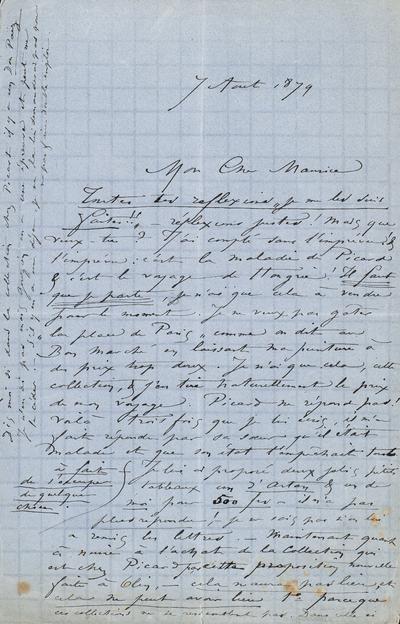 7 Aout 1879
Mon Cher Maurice
Toutes tes reflexions, je me les suis
faites!! réflexions justes! Mais que
veux-tu? J'ai compté sans l'imprévu! &
l'imprévu: c'est la maladie de Picard
& c'est le voyage de Hongrie! Il faut
que je parte, je n'ai que cela à vendre
pour le moment. Je ne veux pas gater
la place de Paris, comme on dit au
Bon Marché en laissant ma peinture à
des prix trop doux. Je n'ai que cela, cette
collection, & j'en tire naturellement le prix
de mon voyage. Picard ne répond pas!
voilà trois fois que je lui écris, il m'a
fait répondre par sa sœur qu'il était
malade et que son état l'empêchait
à fait de s'occuper de quelque chose.
je lui ai proposé deux jolis petits
tableaux un d'Artan & un de
moi pour 500 frs il n'a pas
plus répondu! je ne sais pas si on lui
a remis les lettres. Maintenant quant
à nuire à l'achat de la Collection qui
est chez Picard par cette proposition nouvelle
faite à Oly, cela n'aura pas lieu, et
cela ne peut avoir lieu 1º parceque
ces collections ne se ressemblent pas. Dans celle ci
Dis moi si dans la collection chez Picard il y a